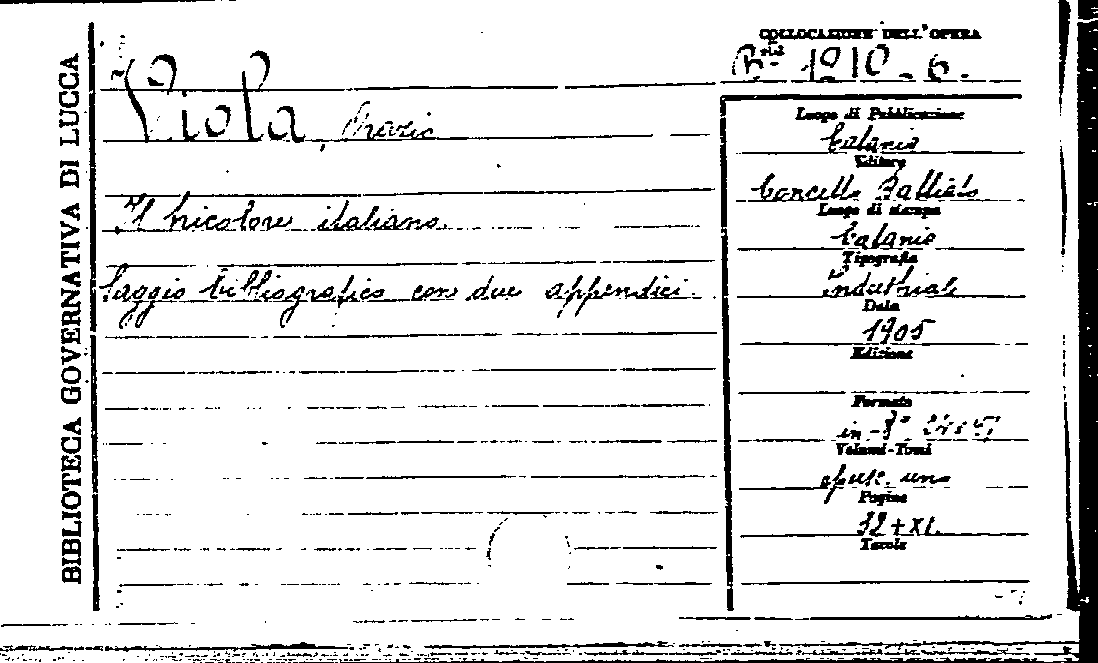 BIBLIOTECA GOVERNATIVA DI LUCCA
COLLOCAZIONE DELL'OPERA
1910-6.
Viola, Orazio
Il tricolore italiano.
Saggio bibliografico con due appendici.
Luogo di Pubblicazione
Catania
Editore
Concetto Battiato
Luogo di stampa
Catania
Tipografia
Industriale
Data
1905
Edizione
Formato
in-8°
Volumi-Tomi
opusc. uno
Pagine
32+XI.
Tavole